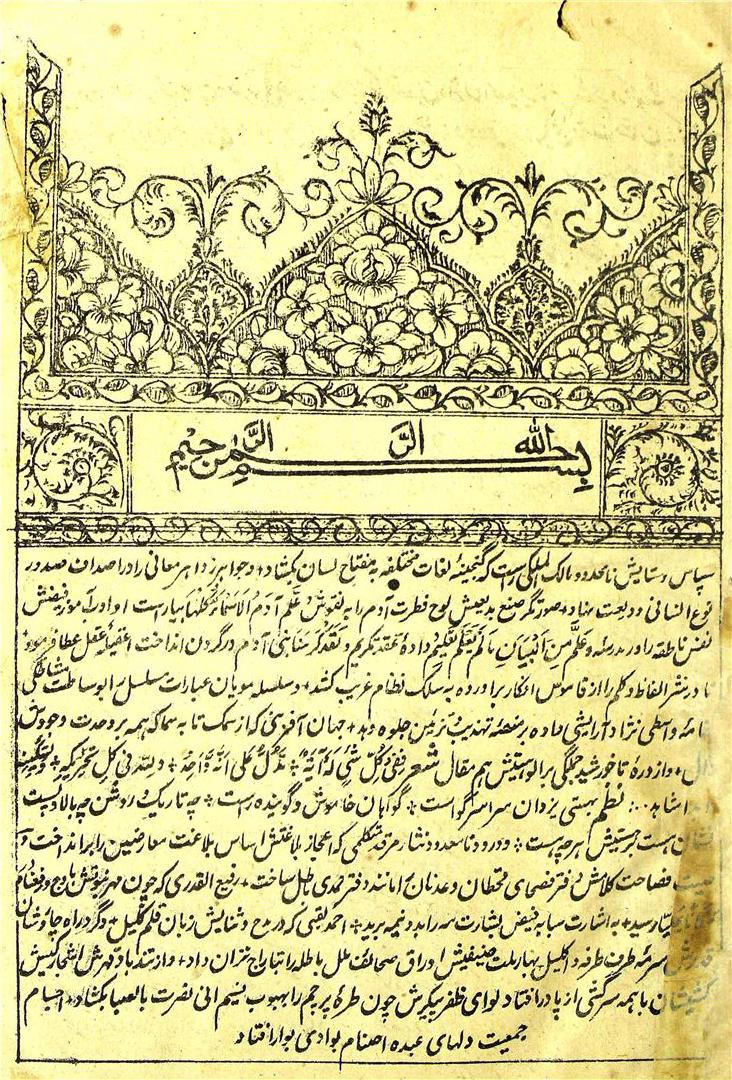 بسم الله الرحمن الرحیم
سپاس و ستایش نامحدود مالک الملکی راست که گنجینهٔ لغات مختلفه به مفتاح لسان بکشاد و جواهر زواهر معانی را در اصداف صدور
نوع انسانی ودیعت نهاد صورتگر صنع بدیعش لوح فطرت آدم را به نقوش عَلَّمَ آدَمَ الْأَسْمَاءَ كُلَّهَا بیاراست و ادب آموز فیضش
نفس ناطقه را در مدرسهٔ وَعَلَّم مِنَ الْبَیَانِ مَا لَمْ یَعْلَم تعلیم داده عقد تکریم وَلَقَدْ كَرَّمْنَا بَنِي آدَم در گردن انداخت عقیلهٔ عقل عطا فرمود
تا در نثر الفاظ و کلم را از قاموس افکار برآورده به سلک نظام غریب کشد و سلسله مویان عبارات مسلسل را بوساطت مشاطگی
خامه واسطی نژاد آرایشی داده بر منصهٔ تهذیب و تزئین جلوه دهد جهان آفرینی که از سمک تا به سماک همه بر وحدت وجودش
دال و از ذره تا خورشید جملگی بر الوهیتش هم مقال شعر فَفِي كُلِّ شَيْءٍ لَهُ آيَةٌ تَدُلُّ عَلَى أَنَّهُ وَاحِدٌ وَلِلَّهِ فِي كُلِّ تَحْرِيكَةٍ وَتَسْكِينَةٍ
شاهد نظم بهستی یزدان سراسر گواست گواهان خاموش و گوینده راست چه تاریک و روشن چه بالا و پست
نشان هست بر هستیش هر چه هست و درود نامعدود نثار مرقد متکلمی که اعجاز بلاغتش اساس بلاغت معارضین را برانداخت و
فصاحت کلامش دفتر فصحای قحطان و عدنان را مانند دفتر نمدی باطل ساخت رفیع القدری که چون مهر نبوتش باوج
رسید به اشارت سبابه فیض بشارت مه را بدو نیمه برید احمد لقبی که در مدح و ثنایش زبان قلم کلیل و گرد راه چاوشان
سرمه طرف طرفه و اکلیل بهار ملت حنیفیش اوراق صحائف ملل باطله را بتاراج خزان داد و از تندباد قهرش اشجار کیش
با همه سرکشی از پا درافتاد لوای ظفر پیکرش چون طره پرچم را بهبوب نسیم انی نصرت بالصبا بکشاد اجسام
جمعیت دلهای عبده اصنام بوادی بوار افتاد